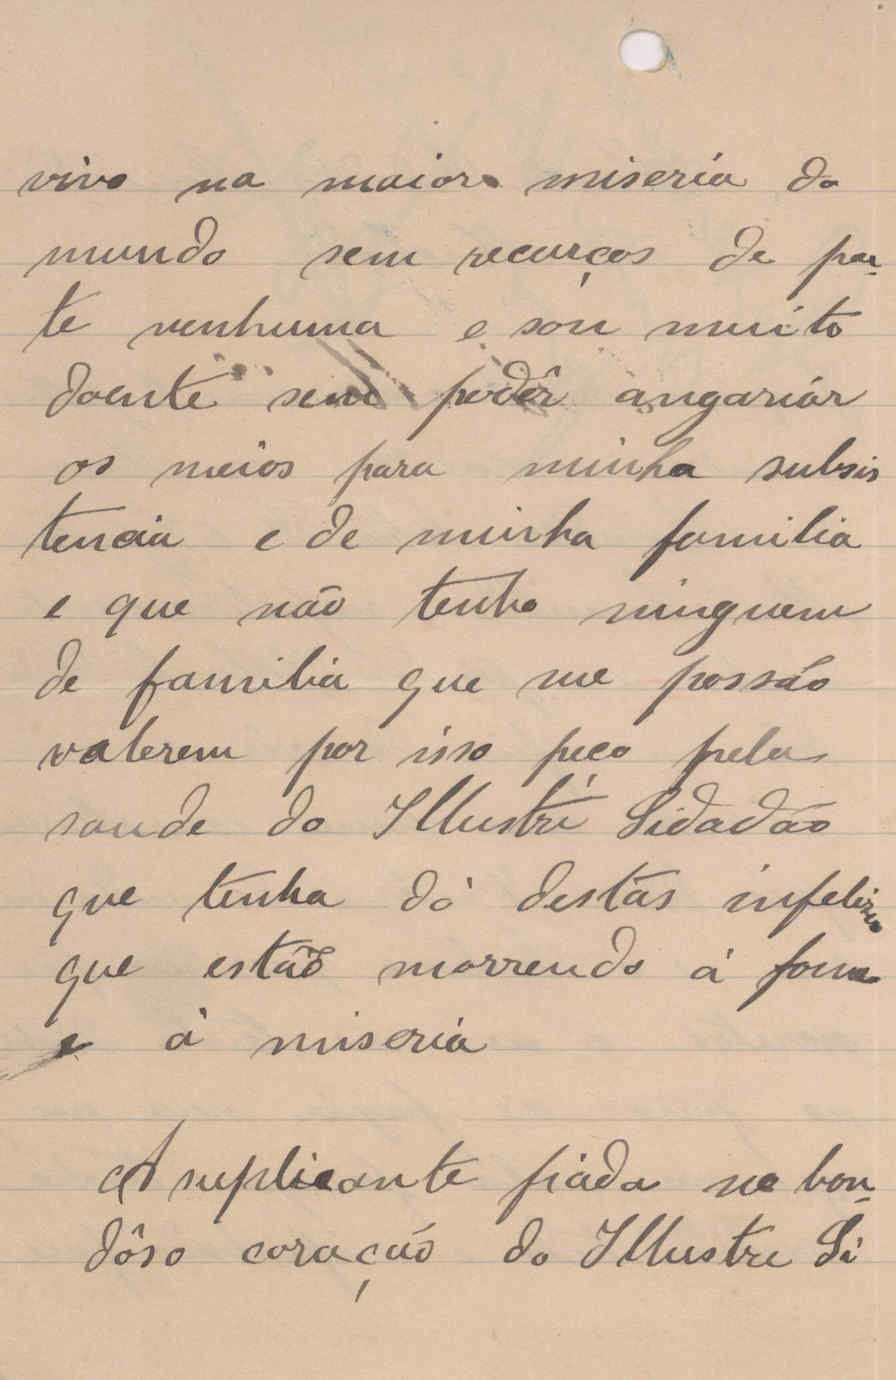 vivo na maior miseria do
mundo sem recurços de par-
te nenhuma e sou muito
doente sem podêr angariár
os meios para minha subsis
tencia e de minha familia
e que não tenho ninguem
de familia que me possão
valerem por isso peço pela
saude do Illustre Sidadão
que tenha dó destas infelizes
que estão morrendo á fome
e á miseria
A suplicante fiáda no bon-
dôso coração do Illustre Si